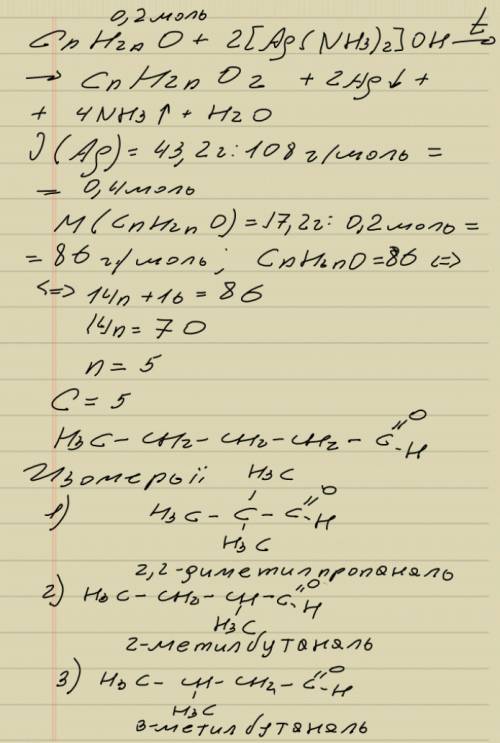 0,2 моль
CnH2nO + 2[Ag(NH3)2]OH t→
→ CnH2nO2 + 2Ag↓ +
+ 4NH3↑ + H2O
ν(Ag) = 43,2г : 108 г/моль =
= 0,4 моль
M(CnH2nO) = 17,2г : 0,2 моль =
= 86 г/моль; CnH2nO = 86 <=>
<=> 14n + 16 = 86
14n = 70
n = 5
C = 5
H3C – CH2 – CH2 – CH2 – C=O –H
Изомеры:
H3C
1) H3C – C – C=O –H
H3C
2,2-диметилпропаналь
2) H3C – CH2 – CH – C=O –H
H3C
2-метилбутаналь
3) H3C – CH – CH2 – C=O –H
H3C
3-метилбутаналь